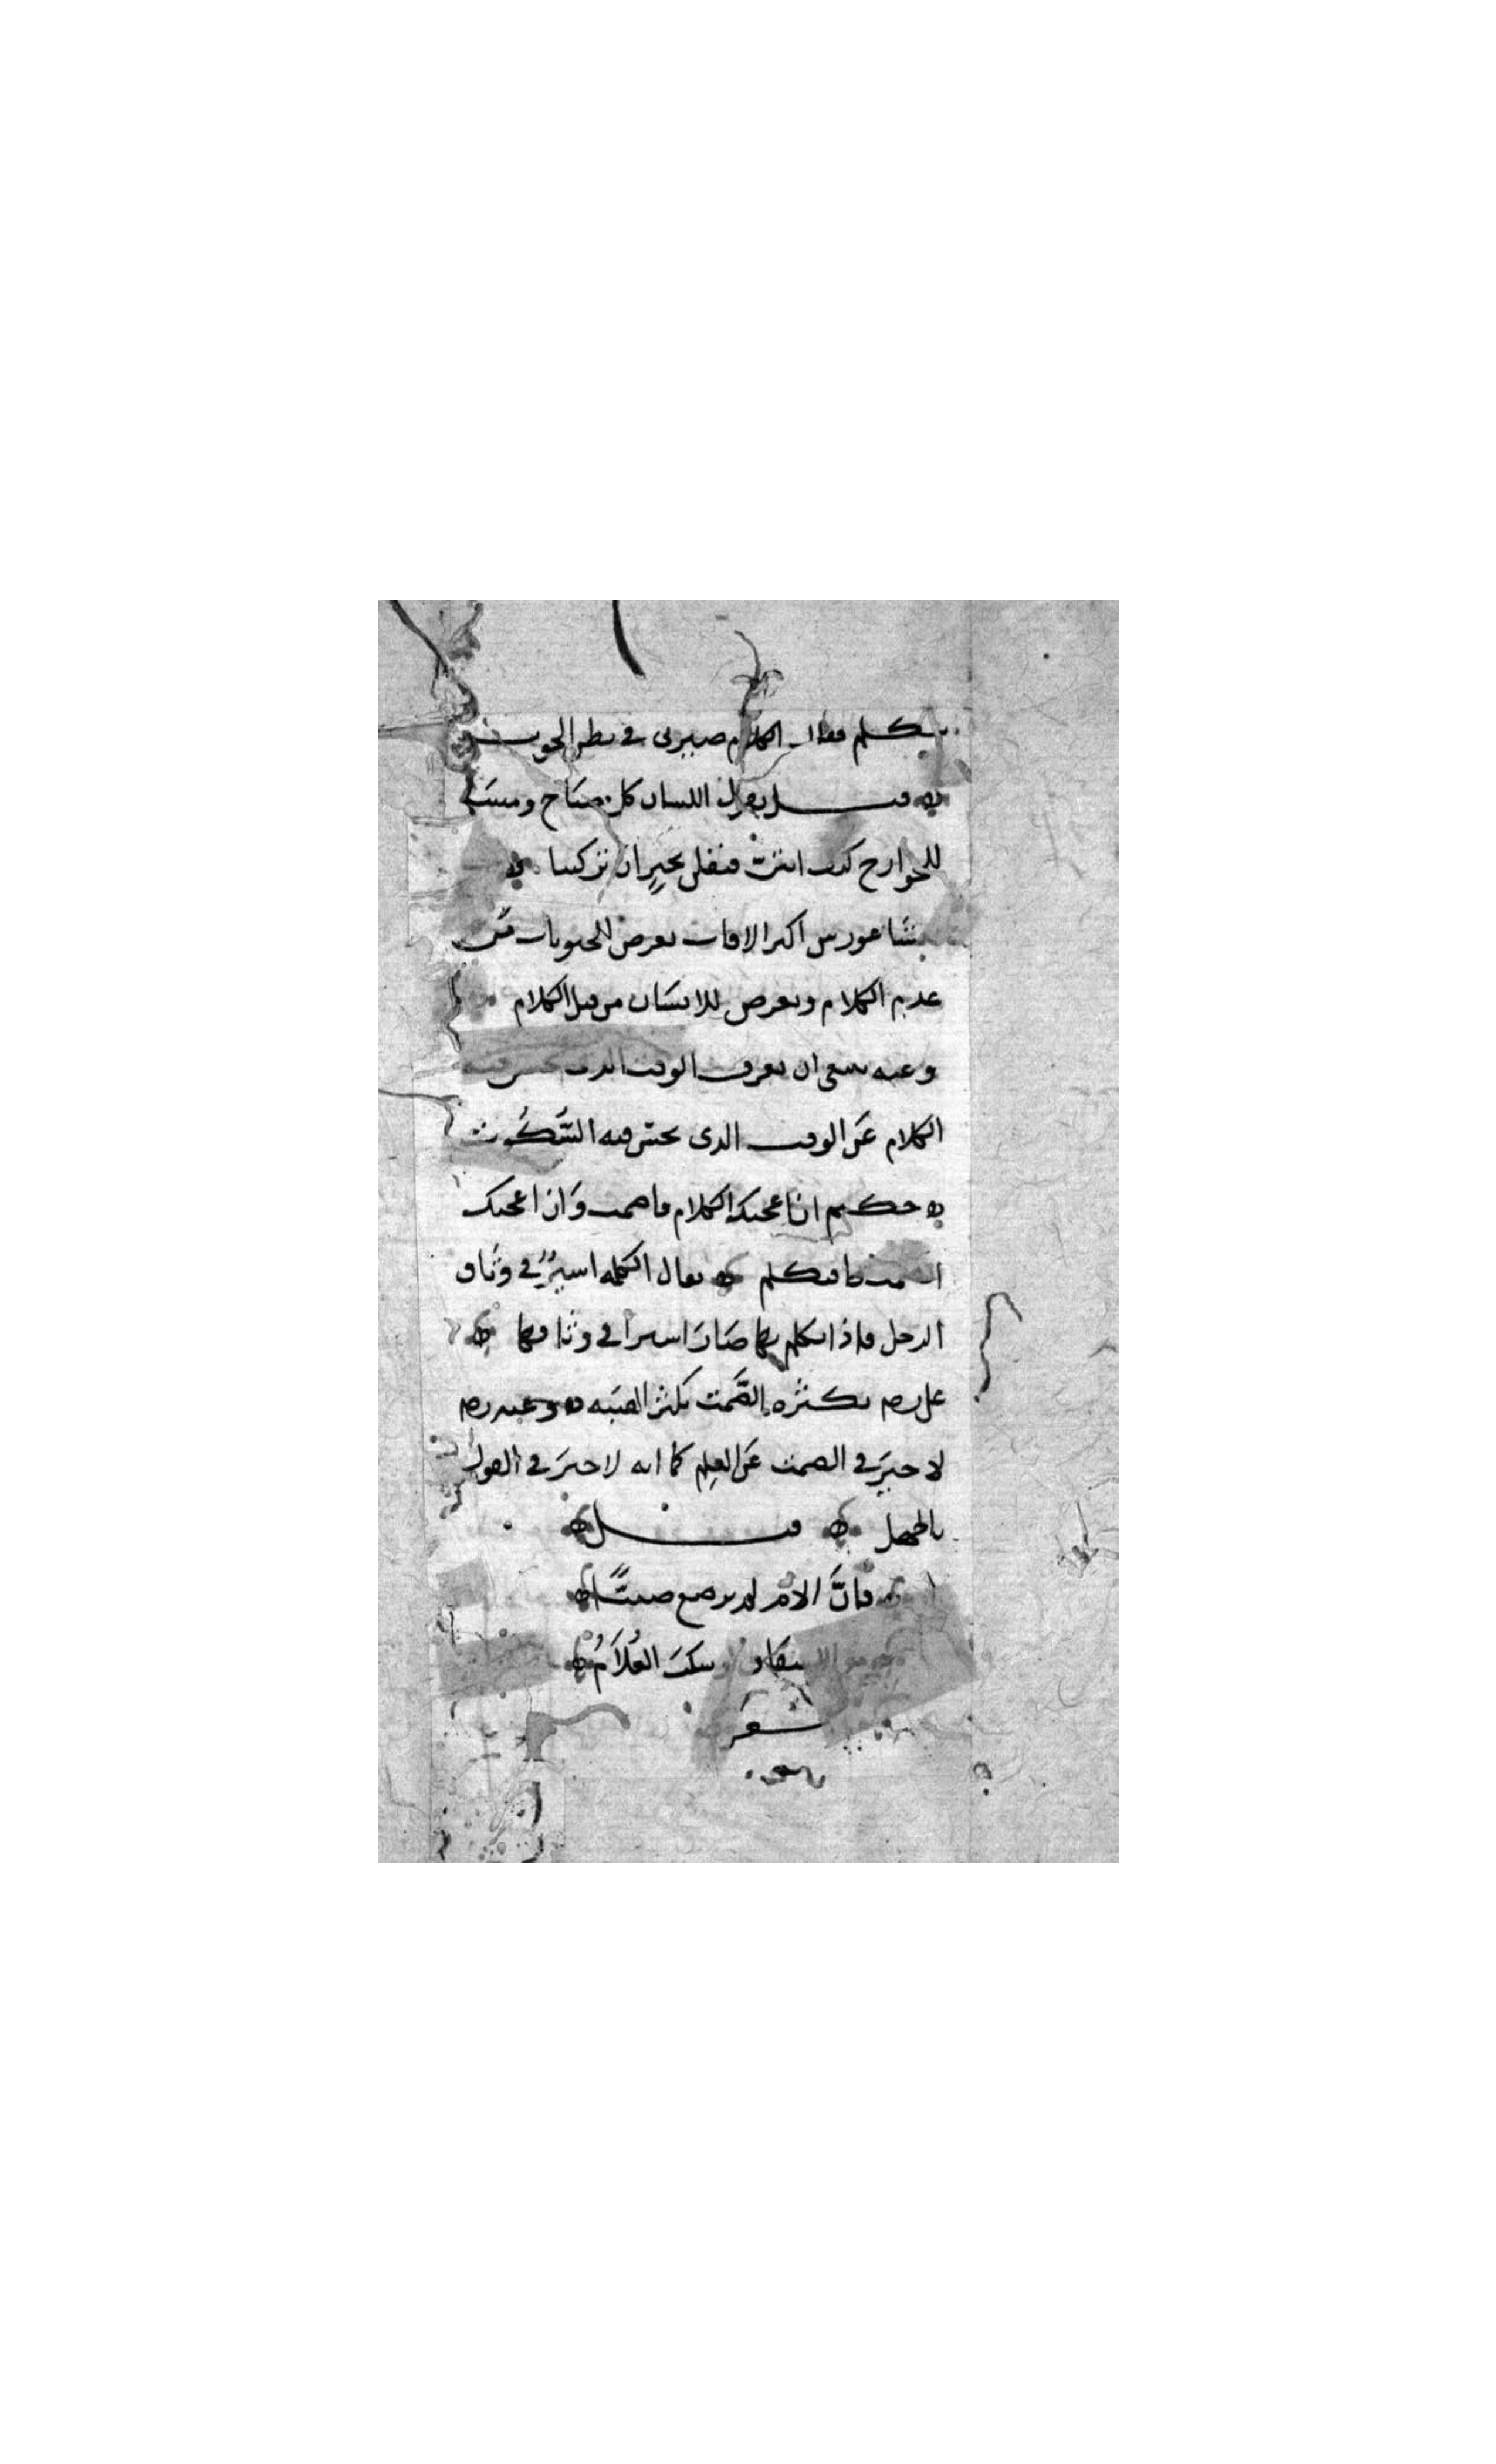 يتكلم فقال الكلام صيرني في بطن الحوت
قيل يقول اللسان كل صباح ومساء
للجوارح كيف انتن فيقلن بخير ان تركتنا
بيثاغورس اكثر الافات تعرض للحيوانات من
عدم الكلام وتعرض للانسان من قبل الكلام
وعنه ينبغي ان يعرف الوقت الذي يحسن فيه
الكلام عن الوقت الذي يحسن فيه السُّكُوت
حكيم اذا اعجبك الكلام فاصمت وَاذا اعجبك
الصمت فتكلم يقال الكلمه اسيرٌ في وثاق
الرجل فاذا تكلم بها صَارَ اسيراً في وثاقها
على رضه بكثره الصَّمت تكثر الهيبه وعنه رضه
لا خيرَ في الصمت عَن العِلم كما انه لا خيرَ في القول
بالجهل قيل
فانَّ الام لم ترضع صبيًّا
مع الاشفاق لو سكتَ الغُلاَمُ
شعر